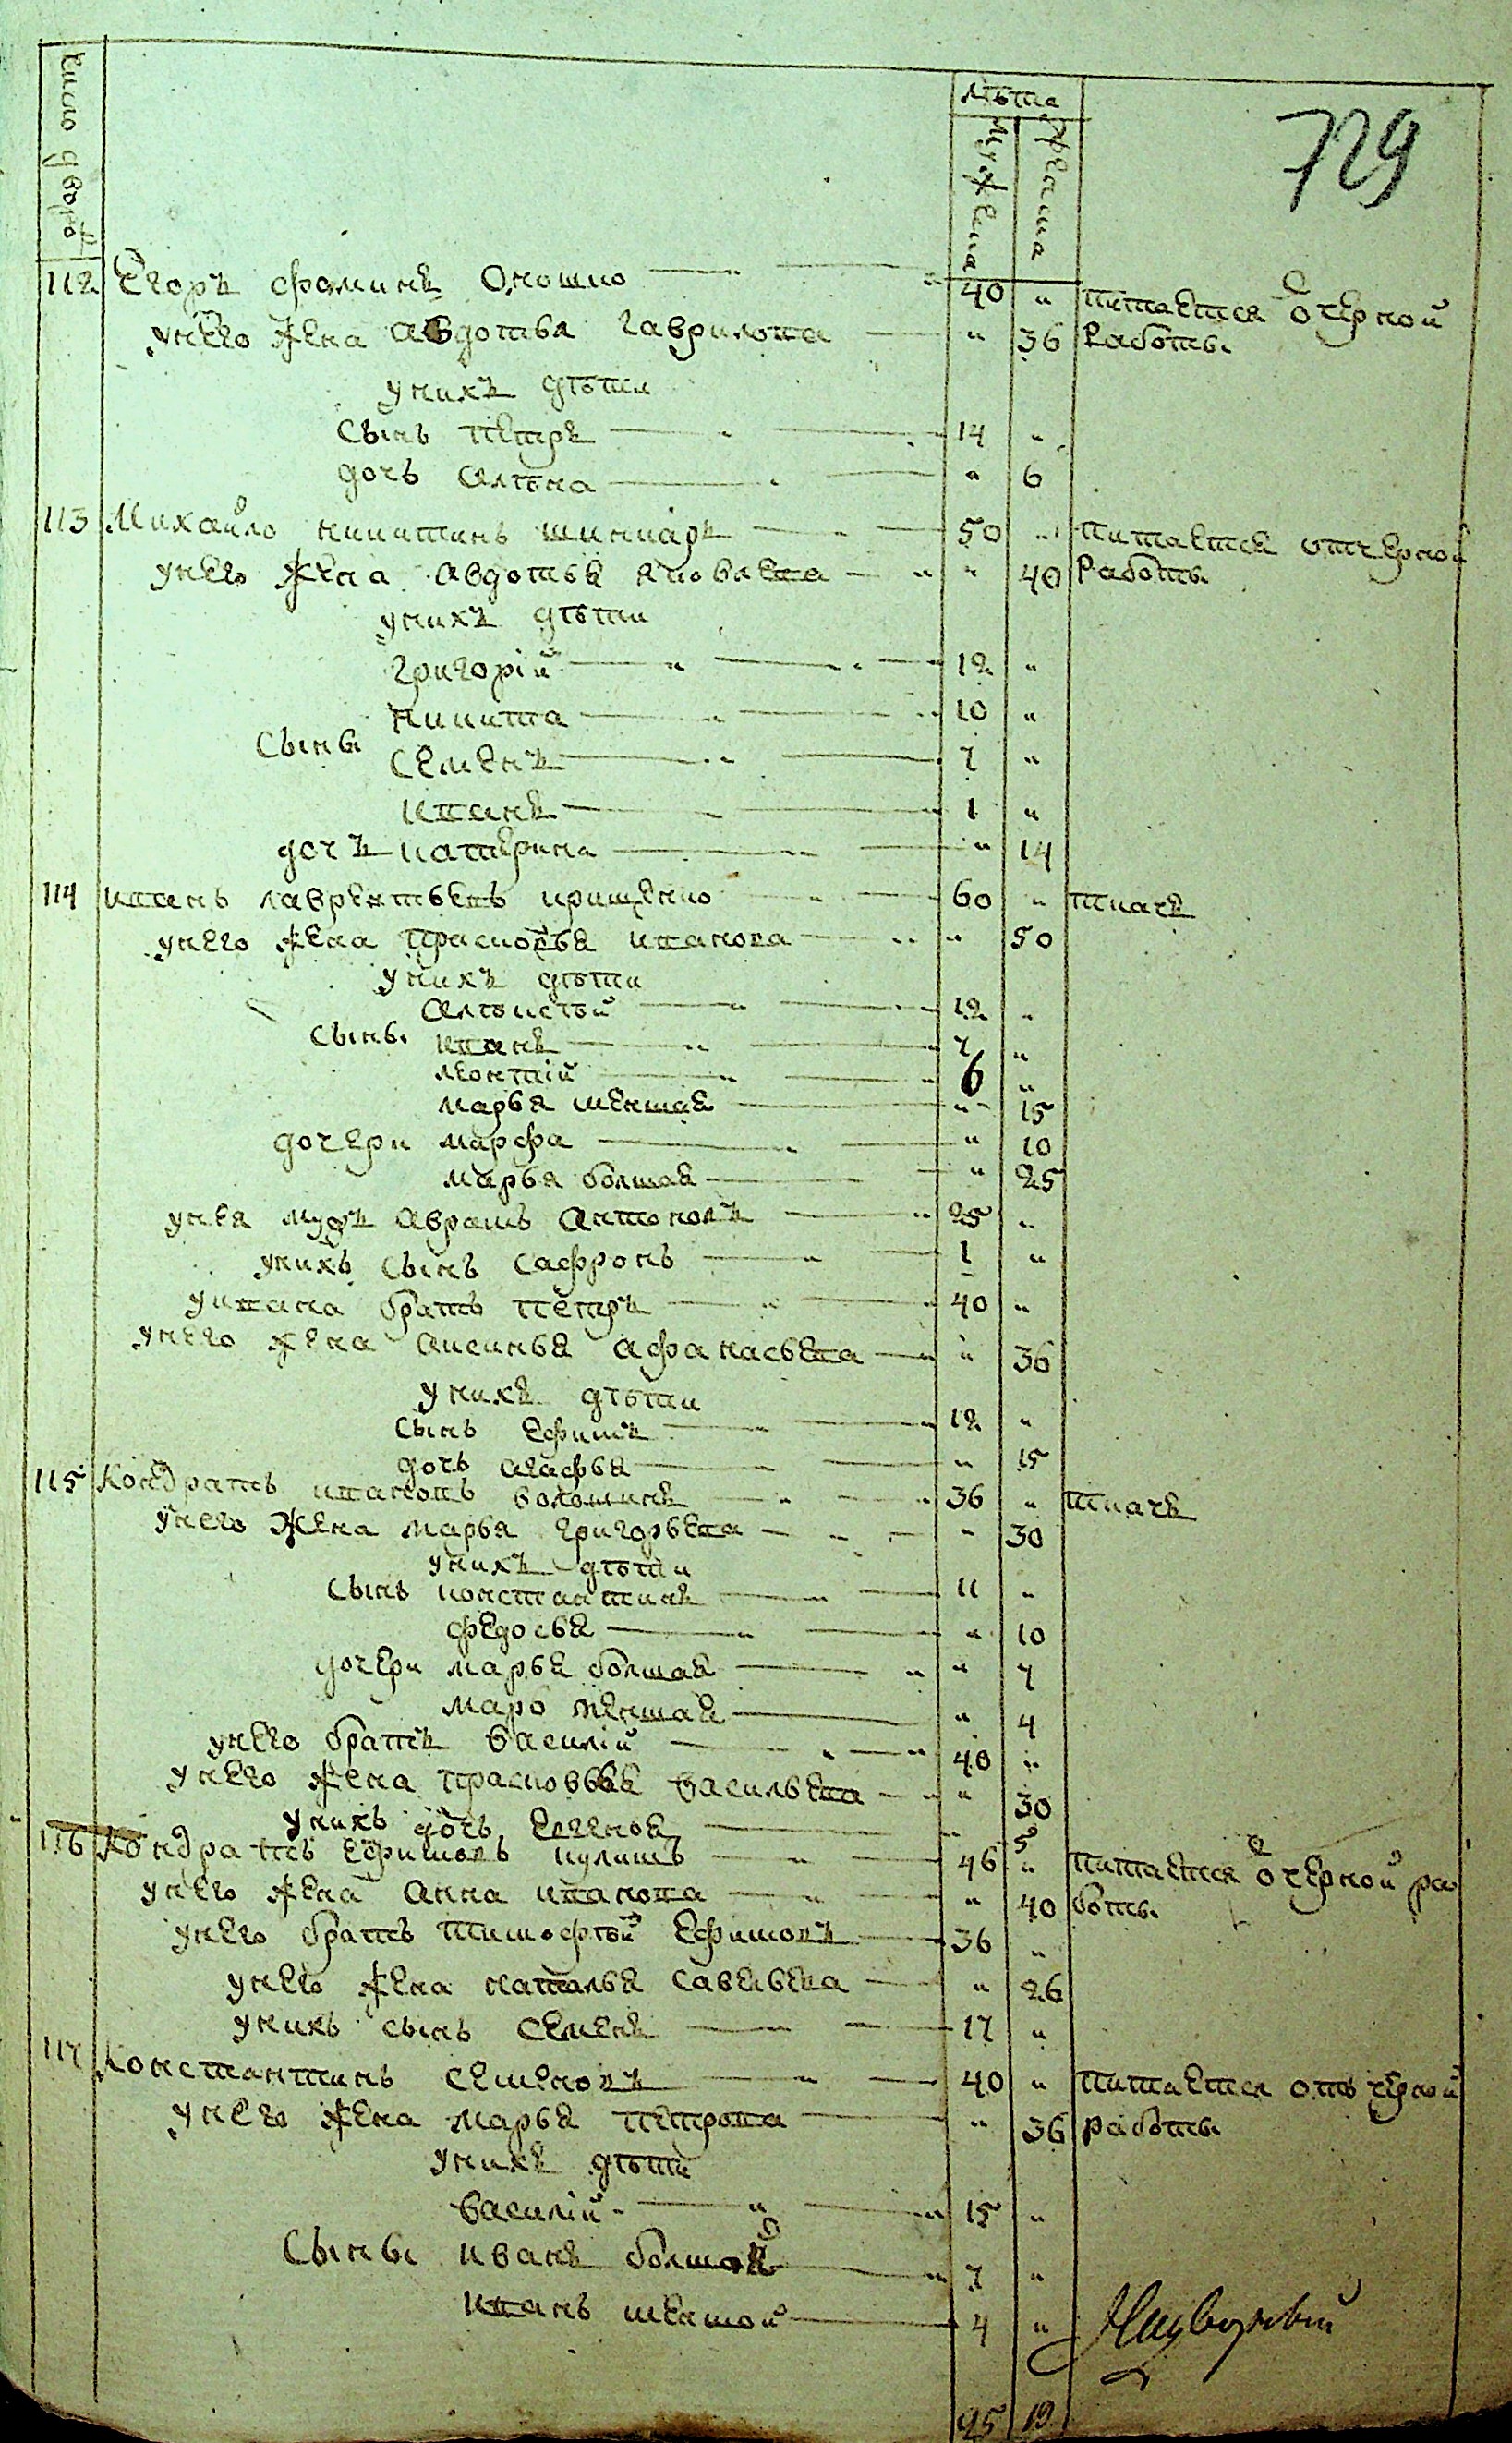 число дворовъ
лѣта
мужеска
женска
729
112 Егоръ фоминъ Оношко 40 " питается о черной
у него жена авдотья гаврилова " 36 работы
у нихъ дѣти
сынъ петръ 14 "
дочь алѣна " 6
113 Михайло никитинъ шинкаръ 50 " питается отчерной
у него жена авдотья яковлева " 40 работы
у нихъ дѣти
григорій 12 "
никита 10 "
сыны
семенъ 7 "
иванъ 1 "
дочъ катерина " 14
114 иванъ лаврентьевъ крищенко 60 " ткачь
у него жена прасковья иванова " 50
у нихъ дѣти
алѣксѣй 12 "
сыны иванъ 7 "
леонтій 6 "
марья меншая " 15
дочери марфа " 10
марья болшая " 25
у нея мужъ аврамъ антоновъ 25 "
у нихъ сынъ сафронъ 1 "
у ивана братъ петръ 40 "
у него жена аксинья афанасьева " 36
у нихъ дѣти
сынъ ефимъ 12 "
дочь агафья " 15
115 Кондратъ ивановъ волошинъ 36 " ткачь
у него жена марья григорьева " 30
у нихъ дѣти
сынъ константинъ 11 "
федосья " 10
дочери марья болшая " 7
маря меншая " 4
у него братъ василій 40 "
у него жена прасковья васильева " 30
у нихъ дочь " 5
116 Кондратъ ефимовъ кулишъ 46 " питается о черной ра
у него жена анна иванова " 40 боты
у него братъ тимофѣй ефимовъ 36 "
у него жена наталья савельева " 26
у нихъ сынъ семенъ 17 "
117 Константинъ семеновъ 40 " питается отъ черной
у него жена марья петрова " 36 работы
у нихъ дѣти
василій 15 "
сыны иванъ болшой 7 "
иванъ меншой 4 "
25 19